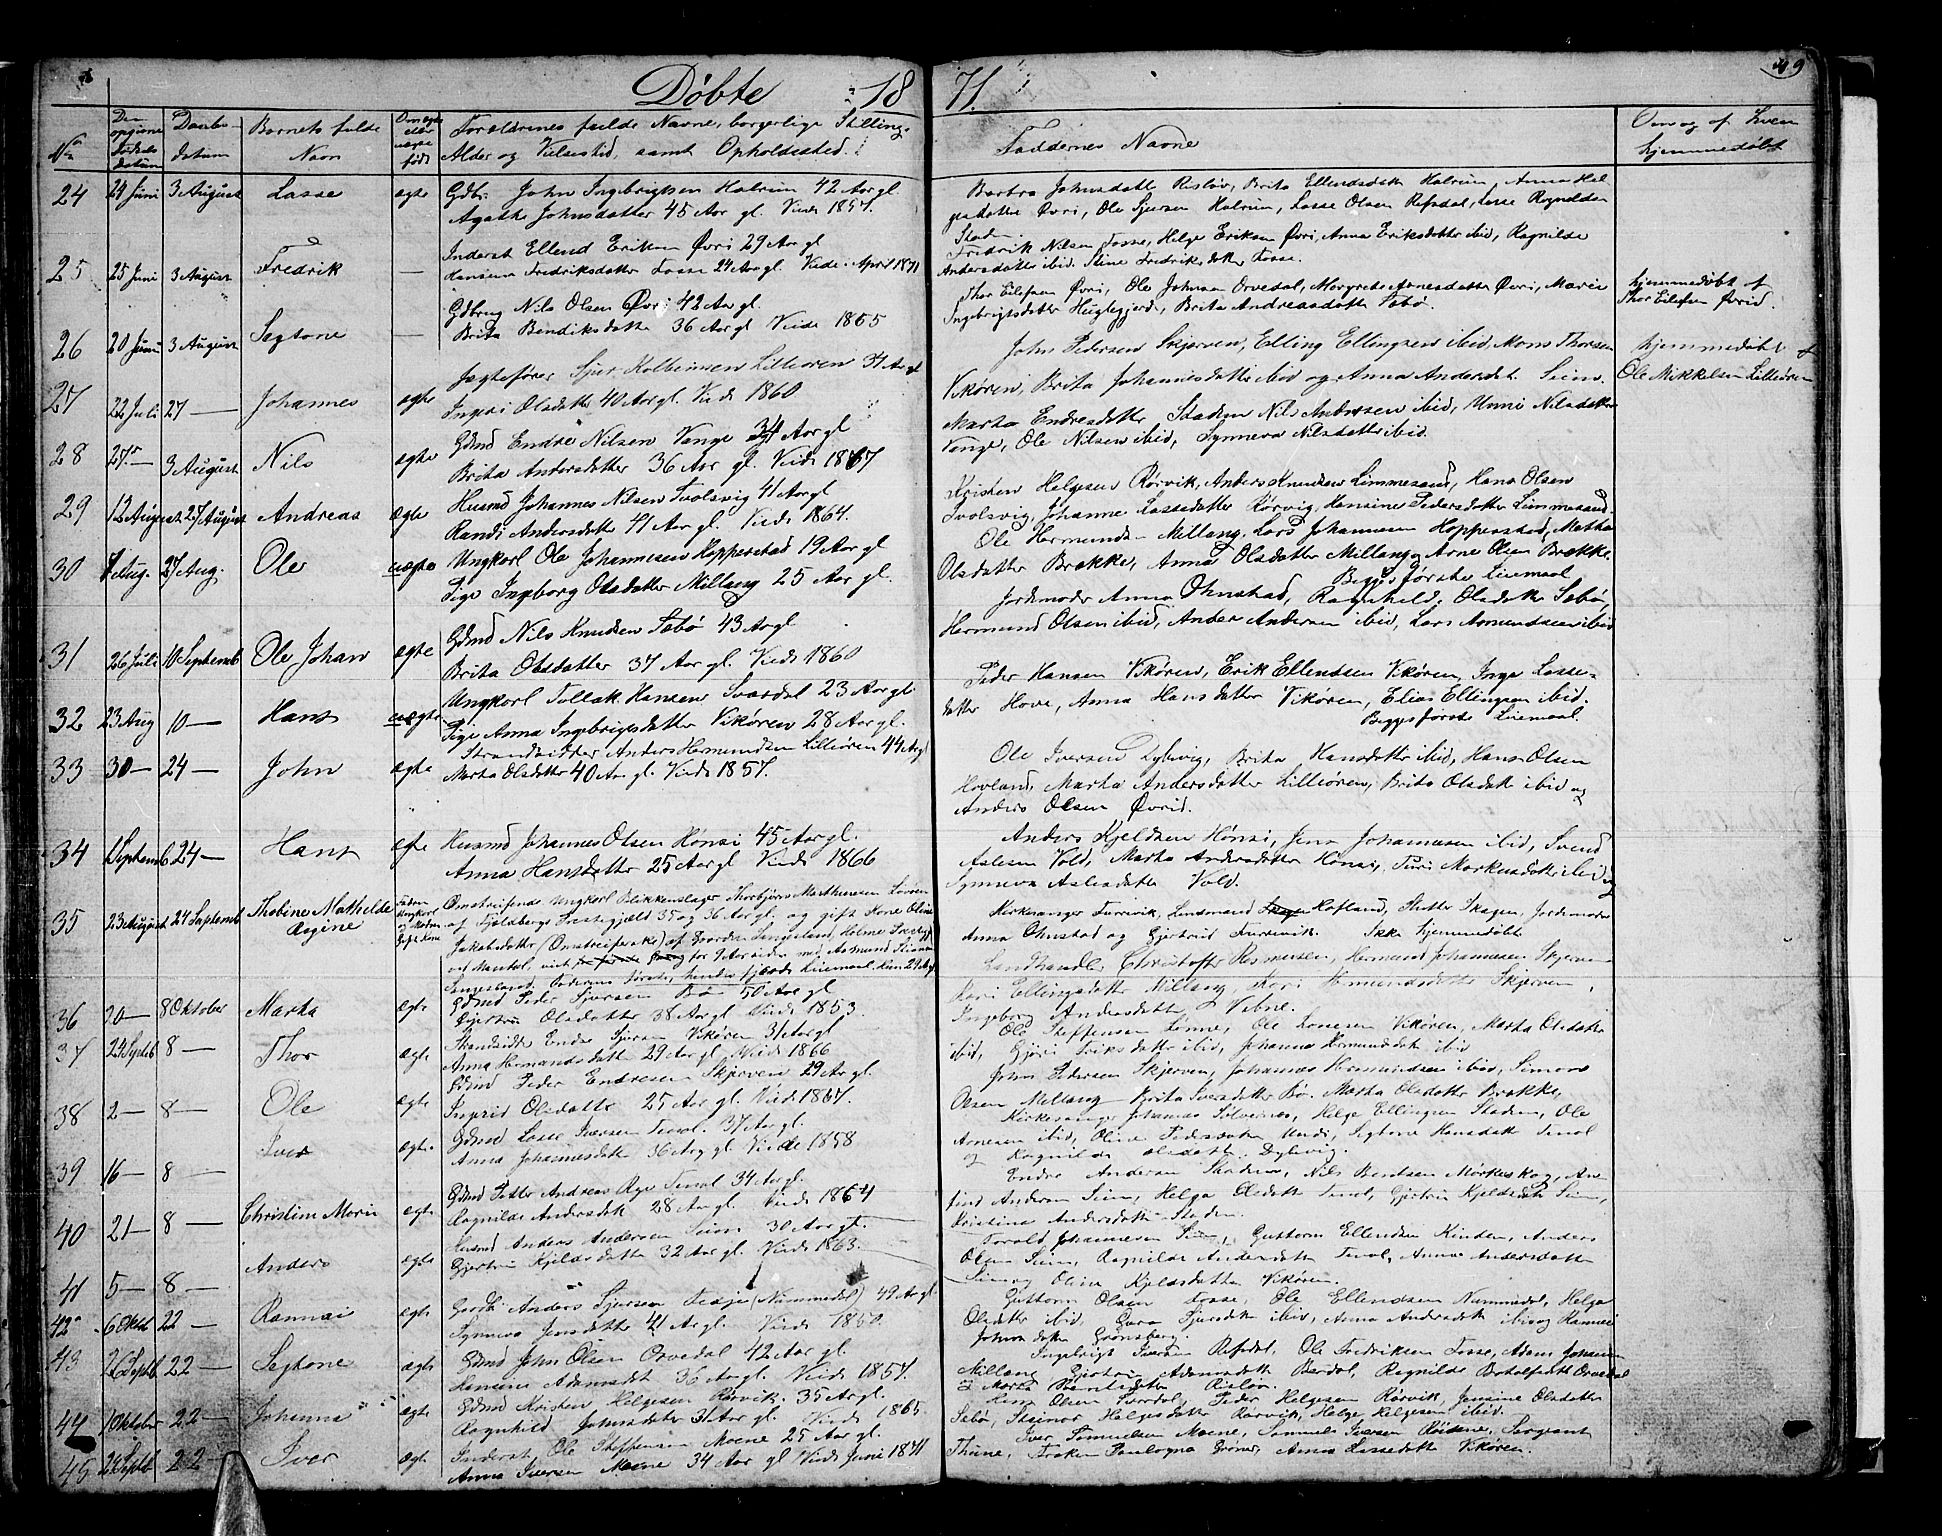 Døbte 18 71.
49
No
Den opgivne Fødselsdatum
Daabsdatum
Barnets fulde Navn
Om ægte eller uægte født
Forældrenes fulde Navne, borgerlige Stilling, Alder og Vielsestid, samt Opholdssted
Faddernes Navne
hjemmedøbt
24 24 Juni 3 August Lasse ægte Gdbr. John Ingebrigtsen Halrim 42 Aar gl.
Agathe Johnsdatter 45 Aar gl. Viede 1857.
Barbra Johnsdatter Risløv, Brita Ellendsdatt Halrim, Anna Hel
gesdatter Øvri, Ole Sjursen Halrim, Lasse Olsen Refsdal, Lasse Rognaldsen
Staden.
25 25 Juni 3 August Fredrik — Inderst Ellend Eriksen Øvri 29 Aar gl
Hansina Fredriksdatter Fosse 24 Aar gl. Viede April 1871
Fredrik Nilsen Fosse, Helge Eriksen Øvri, Anna Eriksdatter ibid, Ragnilde
Andersdatter ibid. Stine Fredriksdatter Fosse.
26 20 Juni 3 August Segtone — Gdbrug Nils Olsen Øvri 42 Aar gl.
Brita Bendiksdatter 36 Aar gl Viede 1865
Thor Eilefsen Øvri, Ole Johnsen Orvedal, Margrete Arnesdatter Øvri, Marie
Ingebrigtsdatter Huglegjerde, Brita Andreasdatter Sæbø.
hjemmedøbt af
Thor Eilefsen Øvrid.
27 22 Juli 27 — Johannes ægte Jægtefører Sjur Kolbeinsen Lilleøren 37 Aar gl
Ingeri Olsdatter 40 Aar gl. Viede 1860
John Pedersen Skjerven, Elling Ellingsen ibid, Mons Thorsen
Vikøren, Brita Johannesdatter ibid og Anna Andersdt. Seim.
hjemmedøbt af
Ole Mikkelsen Lilleøren
28 27 — 3 August Nils ægte Gdmd Endre Nilsen Vange 34 Aar gl
Brita Andersdatter 36 Aar gl. Viede 1867
Martha Endresdatter Staden, Nils Andersen ibid, Unni Nilsdatter
Vange, Ole Nilsen ibid, Synneva Nilsdatter ibid.
29 12 August 27 August Andreas ægte Husmd Johannes Nilsen Tvolsvig 41 Aar gl
Randi Andersdatter 41 Aar gl. Viede 1864.
Kristen Helgesen Rørvik, Anders Knudsen Limmesand, Hans Olsen
Tvolsvig, Johanne Lassedatter Rørvig, Hansine Pedersdatter Limmesand.
30 7 Aug. 27 Aug. Ole uægte Ungkarl Ole Johannesen Hopperstad 19 Aar gl
Pige Ingeborg Olsdatter Millang 25 Aar gl.
Ole Hermundsn Millang, Lars Johannesen Hopperstad, Martha
Olsdatter Brække, Anna Olsdatter Millang, Arne Olsen Brække.
Begges første Leiermaal
31 26 Juli 10 Septemb Ole Johan ægte Gdmd Nils Knudsen Sæbø 43 Aar gl
Brita Olsdatter 37 Aar gl. Viede 1860
Jordemoder Anna Ohnstad, Ragnhild Olsdatter Sæbø,
Hermund Olsen ibid, Anders Andersen ibid, Lars Asmundsen ibid
32 23 Aug 10 — Hans uægte Ungkarl Tollak Hansen Svardal 23 Aar gl
Pige Anna Ingebrigtsdatter Vikøren 28 Aar gl.
Peder Hansen Vikøren, Erik Ellendsen Vikøren, Inga Lasse-
datter Hove, Anna Hansdatter Vikøren, Elias Ellingsen ibid.
Begges første Leiermaal.
33 30 — 24 — John ægte Strandsidder Anders Hermundsen Lilleøren 44 Aar gl
Marta Olsdatter 40 Aar gl. Viede 1857.
Ole Iversen Dyhvig, Brita Hansdatter ibid, Hans Olsen
Hovland, Martha Andersdatter Lilleøren, Brita Olsdatt ibid og
Anders Olsen Øvrid.
34 1 Septemb 24 — Hans ægte Husmd Johannes Olsen Hønsi 45 Aar gl.
Anna Hansdatter 25 Aar gl Viede 1866
Anders Kjeldsen Hønsi, Jens Johannesen ibid, Svend
Aslesen Vold, Martha Andersdatter Hønsi, Turi Markusdatt ibid og
Synneva Aslesdatter Vold.
35 23 August 24 Septemb Thobine Mathilde Regine
Omstreifende Ungkarl Blikkenslager Thorbjørn Mathiesen
af Fjeldbergs Præstegjæld 35 og 36 Aar gl. og gift Kone Oline
Jakobsdatter (Omstreiferske)
Kirkesanger Turrivik, Lensmand Hofland, Skagen, Jordemoder
Anna Ohnstad og Gjertrud Turrevik. Ikke hjemmedøbt
36 20 — 8 Oktober Martha ægte Gdmd Peder Sjursen Bø 50 Aar gl
Gjertrui Olsdatter 38 Aar gl Viede 1853.
Landhandler Christoffer Rasmussen, Hermund Johannesen Skjerven
Kari Ellingsdatter Millang, Kari Hermundsdatter Skjerven,
Ingeborg Andersdatter Vebne.
37 24 Septb 8 — Thor ægte Strandsidd Endre Sjursen Vikøren 31 Aar gl
Anna Hermandsdatter 29 Aar gl Viede 1866
Ole Steffensen Lønne, Ole Lonesen Vikøren, Martha Olsdatter
ibid, Gjøri Eriksdatter ibid, Johanna Hermundsdatt ibid
38 2 — 8 — Ole ægte Gdmd Peder Endresen Skjerven 29 Aar gl.
Ingrid Olsdatter 25 Aar gl. Viede 1867.
John Pedersen Skjerven, Johannes Hermundsen ibid, Simon
Olsen Millang, Brita Iversdatter Bø, Martha Olsdatter Brække,
39 16 — 8 — Iver ægte Gdmd Lasse Iversen Tenol. 37 Aar gl.
Anna Johannesdatter 36 Aar gl Viede 1858
Kirkesanger Johannes Silvernes, Helge Ellingsen Staden, Ole
Arnesen ibid, Oline Pedersdatter Undi, Segtone Hansdatt Tenol
og Ragnilde Olsdatter Dyhvig.
40 21 — 8 — Christine Marie ægte Gdmd Petter Andreas Rye Tenol 34 Aar gl.
Ragnilde Andersdatt 28 Aar gl. Viede 1864
Endre Andersen Staden, Nils Bentsen Mørkeskog, An-
find Andersen Seim, Helga Olsdatt Tenol, Gjertrui Kjeldsdatt Seim,
Kristina Andersdatter Staden.
41 5 — 8 — Anders ægte Husmd Anders Andersen Seim 30 Aar gl.
Gjertrui Kjeldsdatter 32 Aar gl. Viede 1863.
Torvald Johannesen Seim, Guttorm Ellendsen Hinden, Anders
Olsen Seim, Ragnilde Andersdatter Tenol, Anna Andersdatter
Seim og Oline Kjeldsdatter Vikøren.
42 6 Oktb 22 — Rannei ægte Gaardbr Anders Sjursen Fosse (Nummedal) 49 Aar gl
Synneva Jensdatter 41 Aar gl. Viede 1850.
Guttorm Olsen Fosse, Ole Ellendsen Nummedal, Helga
Olsdatter ibid, Guro Sjursdatt ibid, Anna Andersdatt ibid og Hansine
Johnsdatter Grønsberg.
43 26 Septb 22 — Segtone ægte Gdmd John Olsen Orvedal 42 Aar gl
Hansine Adamsdatt 36 Aar gl. Viede 1857.
Ingebrigt Iversen Refsdal, Ole Fredriksen Fosse, Adam Johansen
Millang, Gjertrui Adamsdatter Bardal, Ragnilde Botolfsdatt Orvedal
og Marta Bentsdatter Risløv.
44 1 Oktober 22 — Johanna ægte Gdmd Kristen Helgesen Rørvik 35 Aar gl.
Ragnhild Johnsdatter 31 Aar gl. Viede 1865
Hans Olsen Svardal, Peder Helgesen Rørvik, Jensine Olsdatter
Sæbø, Steinor Helgesdatter Rørvik, Helge Helgesen ibid.
45 24 Septb 22 — Iver ægte Inderst Ole Steffensen Moene 25 Aar gl.
Anna Iversen Moene 34 Aar gl Viede Juni 1871
Iver Samuelsen Moene, Samuel Iversen Røisene, Sergeant
Thune, Frøken Paulogna Grøner, Anna Lassedatt Vikøren.